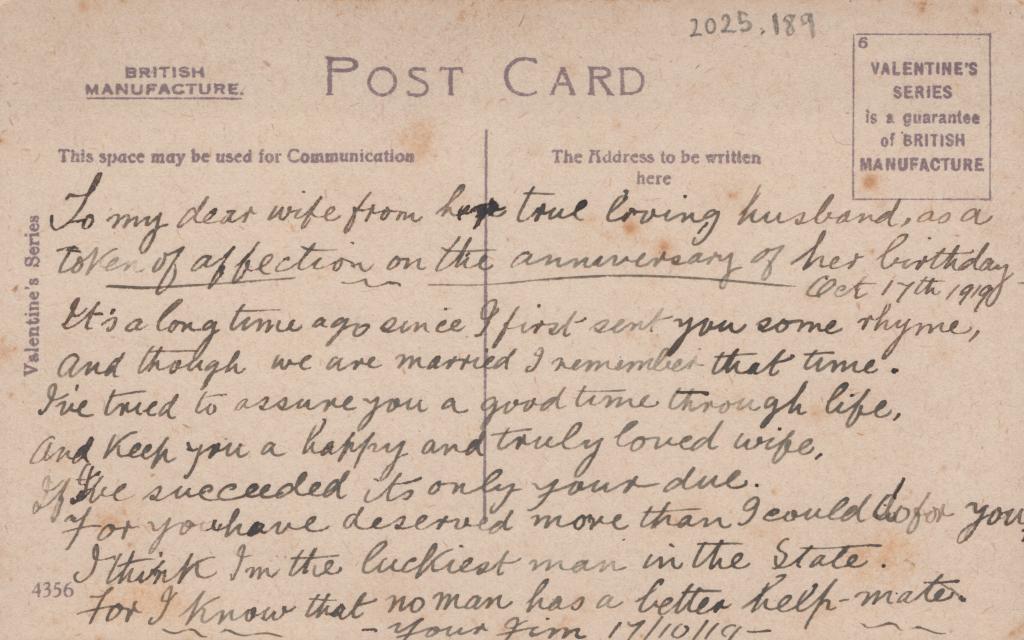 2025.189
BRITISH
MANUFACTURE.
POST CARD
6
VALENTINE'S
SERIES
is a guarantee
of BRITISH
MANUFACTURE
This space may be used for Communication
The Address to be written
here
Valentine's Series
To my dear wife from her true loving husband, as a
token of affection on the anniversary of her birthday
Oct 17th 1919
It's a long time ago since I first sent you some rhyme,
And though we are married I remember that time.
I've tried to assure you a good time through life,
And Keep you a happy and truly loved wife,
If I've succeeded its only your due.
For you have deserved more than I could do for you,
I think Im the luckiest man in the State.
4356
For I know that no man has a better help-mate.
- Your Jim 17/10/19 -